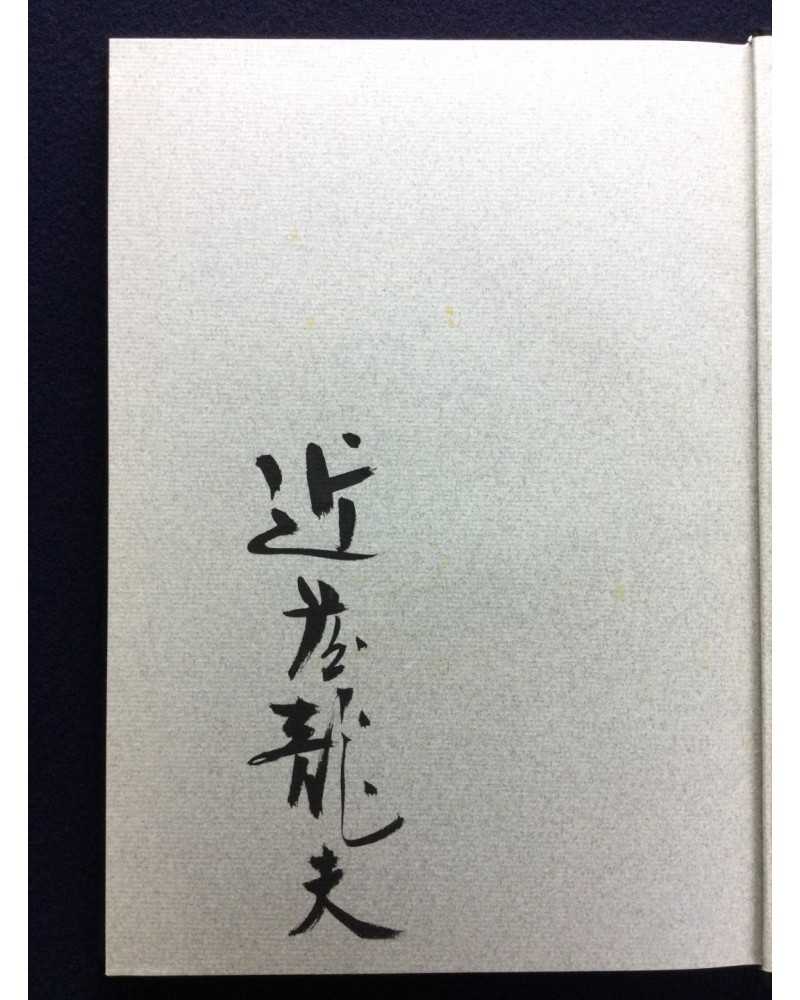 近藤龍夫